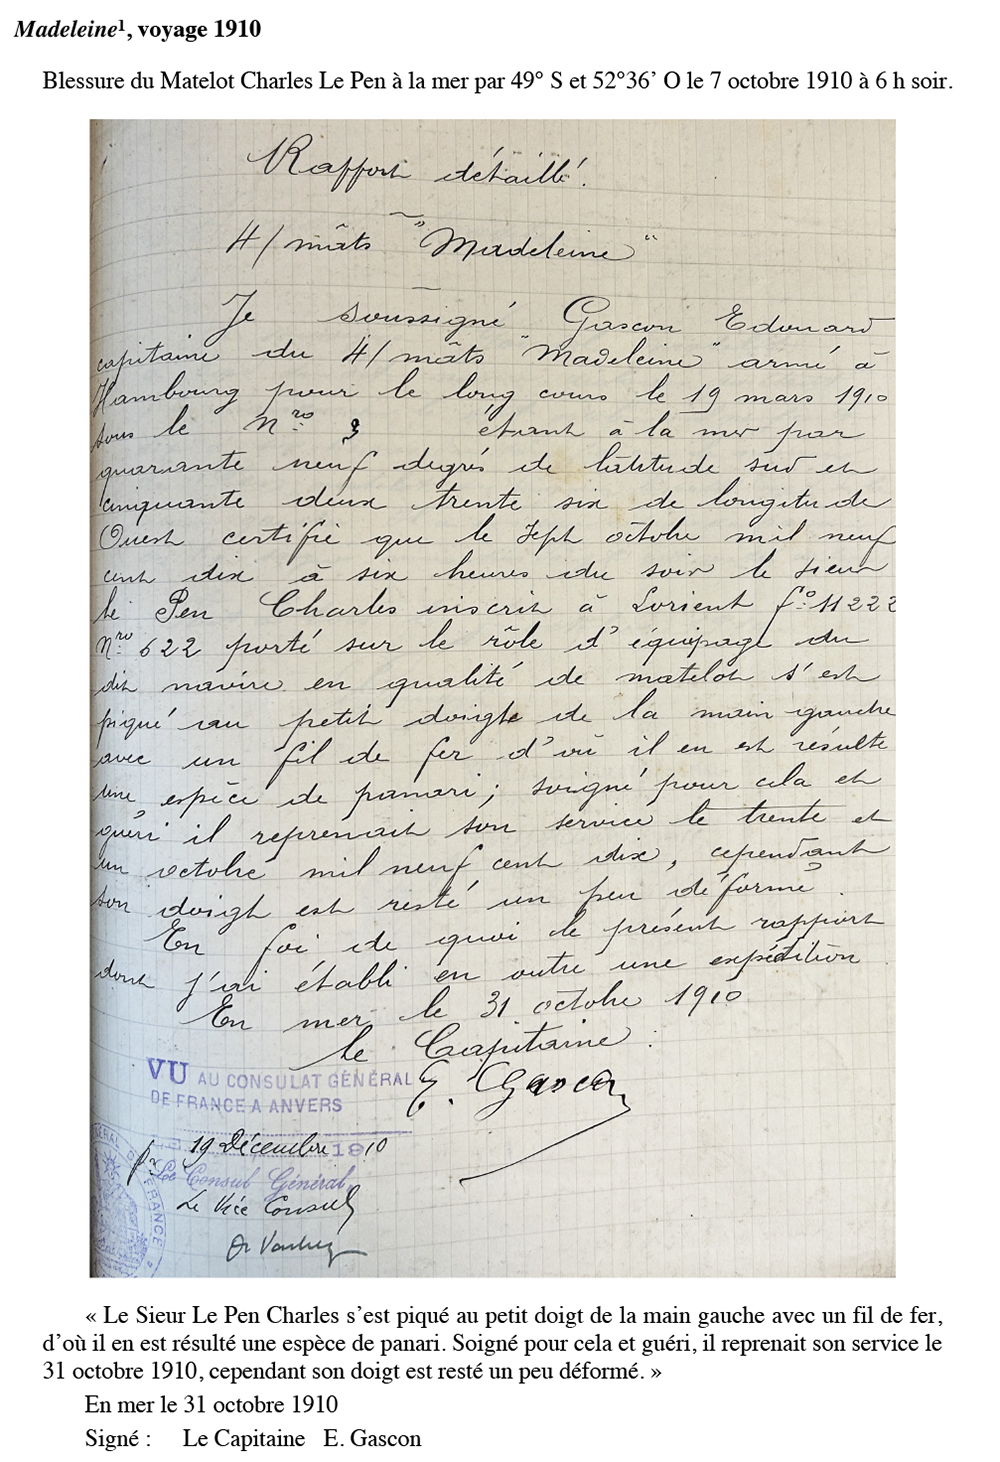 Madeleine¹, voyage 1910
Blessure du Matelot Charles Le Pen à la mer par 49° S et 52°36’ O le 7 octobre 1910 à 6 h soir.
Rapport détaillé.
4/mâts "Madeleine"
Je soussigné Gascon Edouard
capitaine du 4/mâts "Madeleine" armé à
Hambourg pour le long cours le 19 mars 1910
sous le Nro 3 étant à la mer par
quarante neuf degrés de latitude sud et
cinquante deux trente six de longitude
Ouest certifie que le sept octobre mil neuf
cent dix à six heures du soir le sieur
le Pen Charles inscrit à Lorient fo 11222
Nro 622 porté sur le rôle d'équipage du
dit navire en qualité de matelot s'est
piqué au petit doigte de la main gauche
avec un fil de fer d'où il en est résulté
une espèce de panari; soigné pour cela et
guéri il reprenait son service le trente et
un octobre mil neuf cent dix, cependant
son doigt est resté un peu déformé.
En foi de quoi le présent rapport
dont j'ai établi en outre une expédition
En mer le 31 octobre 1910
le Capitaine :
E. Gascon
VU AU CONSULAT GÉNÉRAL
DE FRANCE A ANVERS
19 Décembre 1910
Le Consul Général,
Le Vice Consul
« Le Sieur Le Pen Charles s’est piqué au petit doigt de la main gauche avec un fil de fer,
d’où il en est résulté une espèce de panari. Soigné pour cela et guéri, il reprenait son service le
31 octobre 1910, cependant son doigt est resté un peu déformé. »
En mer le 31 octobre 1910
Signé : Le Capitaine E. Gascon